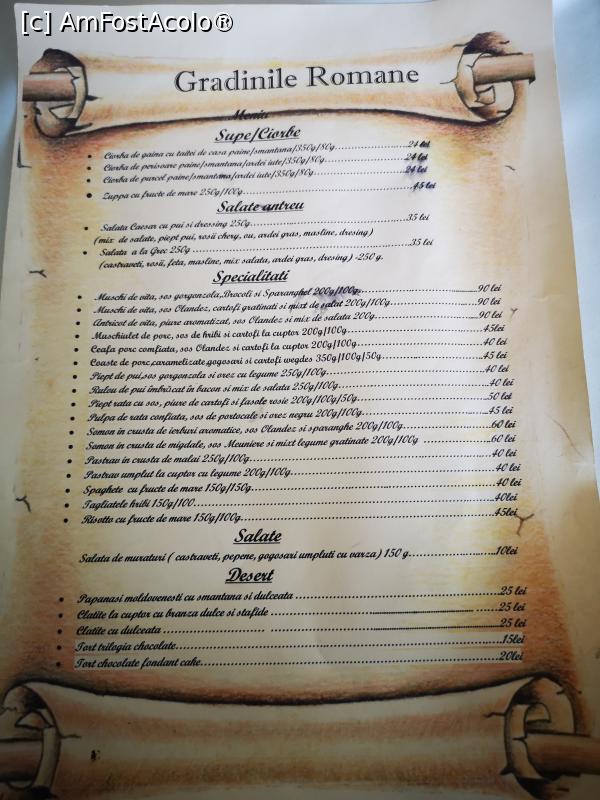 [c] AmFostAcolo®
Gradinile Romane
Meniu
Supe/Ciorbe
Ciorba de gaina cu taitei de casa paine/smantana/350g/80g........24 lei
Ciorba de perisoare paine/smantana/ardei iute/350g/80g........24 lei
Ciorba de porcel paine/smantana/ardei iute/350g/80g........24 lei
Zuppa cu fructe de mare 250g/100g........45 lei
Salate antreu
Salata Caesar cu pui si dressing 250g........35 lei
(mix de salate, piept pui, rosii chery, ou, ardei gras, masline, dresing)
Salata a la Grec 250g........35 lei
(castraveti, rosii, feta, masline, mix salata, ardei gras, dresing) -250 g.
Specialitati
Muschi de vita, sos gorgonzola,Brocoli si Sparanghel 200g/100g........90 lei
Muschi de vita, sos Olandez, cartofi gratinati si mixt de salat 200g/100g........90 lei
Antricot de vita, piure aromatizat, sos Olandez si mix de salata 200g........90 lei
Muschiulet de porc, sos de hribi si cartofi la cuptor 200g/100g........45lei
Ceafa porc comfiata, sos Olandez si cartofi la cuptor 200g/100g........40 lei
Coaste de porc,caramelizate,gogosari si cartofi wegdes 350g/100g/50g........45 lei
Piept de pui,sos gorgonzola si orez cu legume 250g/100g........40 lei
Rulou de pui îmbrăcat în bacon si mix de salata 250g/100g........40 lei
Piept rata cu sos, piure de cartofi si fasole rosie 200g/100g/50g........50 lei
Pulpa de rata confiata, sos de portocale si orez negru 200g/100g........45 lei
Somon in crusta de ierburi aromatice, sos Olandez si sparanghe 200g/100g........60 lei
Somon in crusta de migdale, sos Meuniere si mixt legume gratinate 200g/100g ........60 lei
Pastrav in crusta de malai 250g/100g........40 lei
Pastrav umplut la cuptor cu legume 200g/100g........40 lei
Spaghete cu fructe de mare 150g/150g........40 lei
Tagliatele hribi 150g/100........40lei
Risotto cu fructe de mare 150g/100g........45lei
Salate
Salata de muraturi ( castraveti, pepene, gogosari umpluti cu varza) 150 g........10lei
Desert
Papanasi moldovenesti cu smantana si dulceata ........25 lei
Clatite la cuptor cu branza dulce si stafide ........25 lei
Clatite cu dulceata ........25 lei
Tort trilogia chocolate........15lei
Tort chocolate fondant cake........20lei